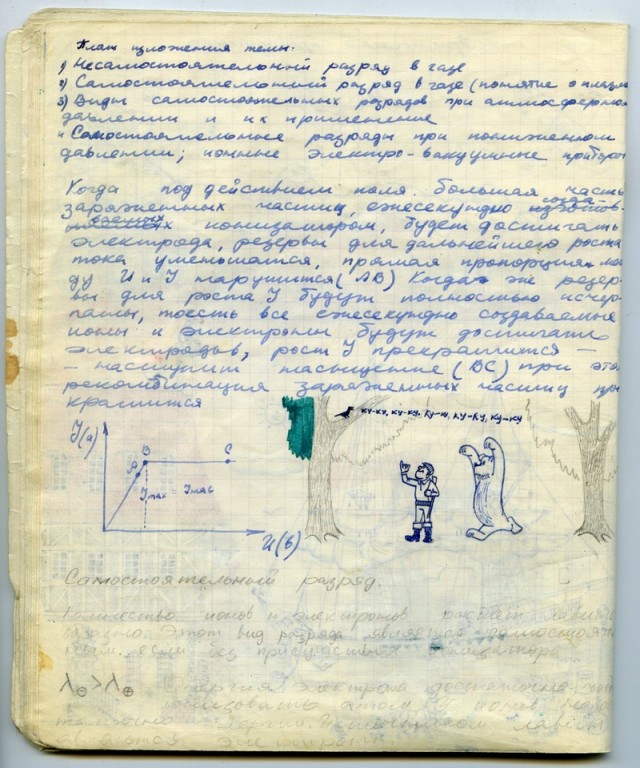 План изложения темы.
1) Несамостоятельный разряд в газе
2) Самостоятельный разряд в газе (понятие о плазм
3) Виды самостоятельных разрядов при атмосферном
давлении и их применение
4 Самостоятельные разряды при пониженном
давлении; ионные электро-вакуумные приборы
Когда под действием поля большая часть
заряженных частиц, ежесекундно созда-
ваемых ионизатором, будет достигать
электрода, резервы для дальнейшего роста
тока уменьшатся, прямая пропорция меж
ду U и I нарушится (АВ) Когда же резер-
вы для роста I будут полностью исчер-
паны, тоесть все ежесекундно создаваемые
ионы и электроны будут достигать
электродов, рост I прекратится -
- наступит насыщение (ВС) при этом
рекомбинация заряженных частиц пре
кратится
ку-ку, ку-ку, ку-ку, ку-ку, ку-ку
I(а)
А В С
Iмах = Iнас
U(в)
Самостоятельный разряд.
Количество ионов и электронов
Этот вид разряда является самостоят
ным. если без присутствия ионизатора
λ⊖ > λ⊕ энергия электрона достаточно
ионизовать атом